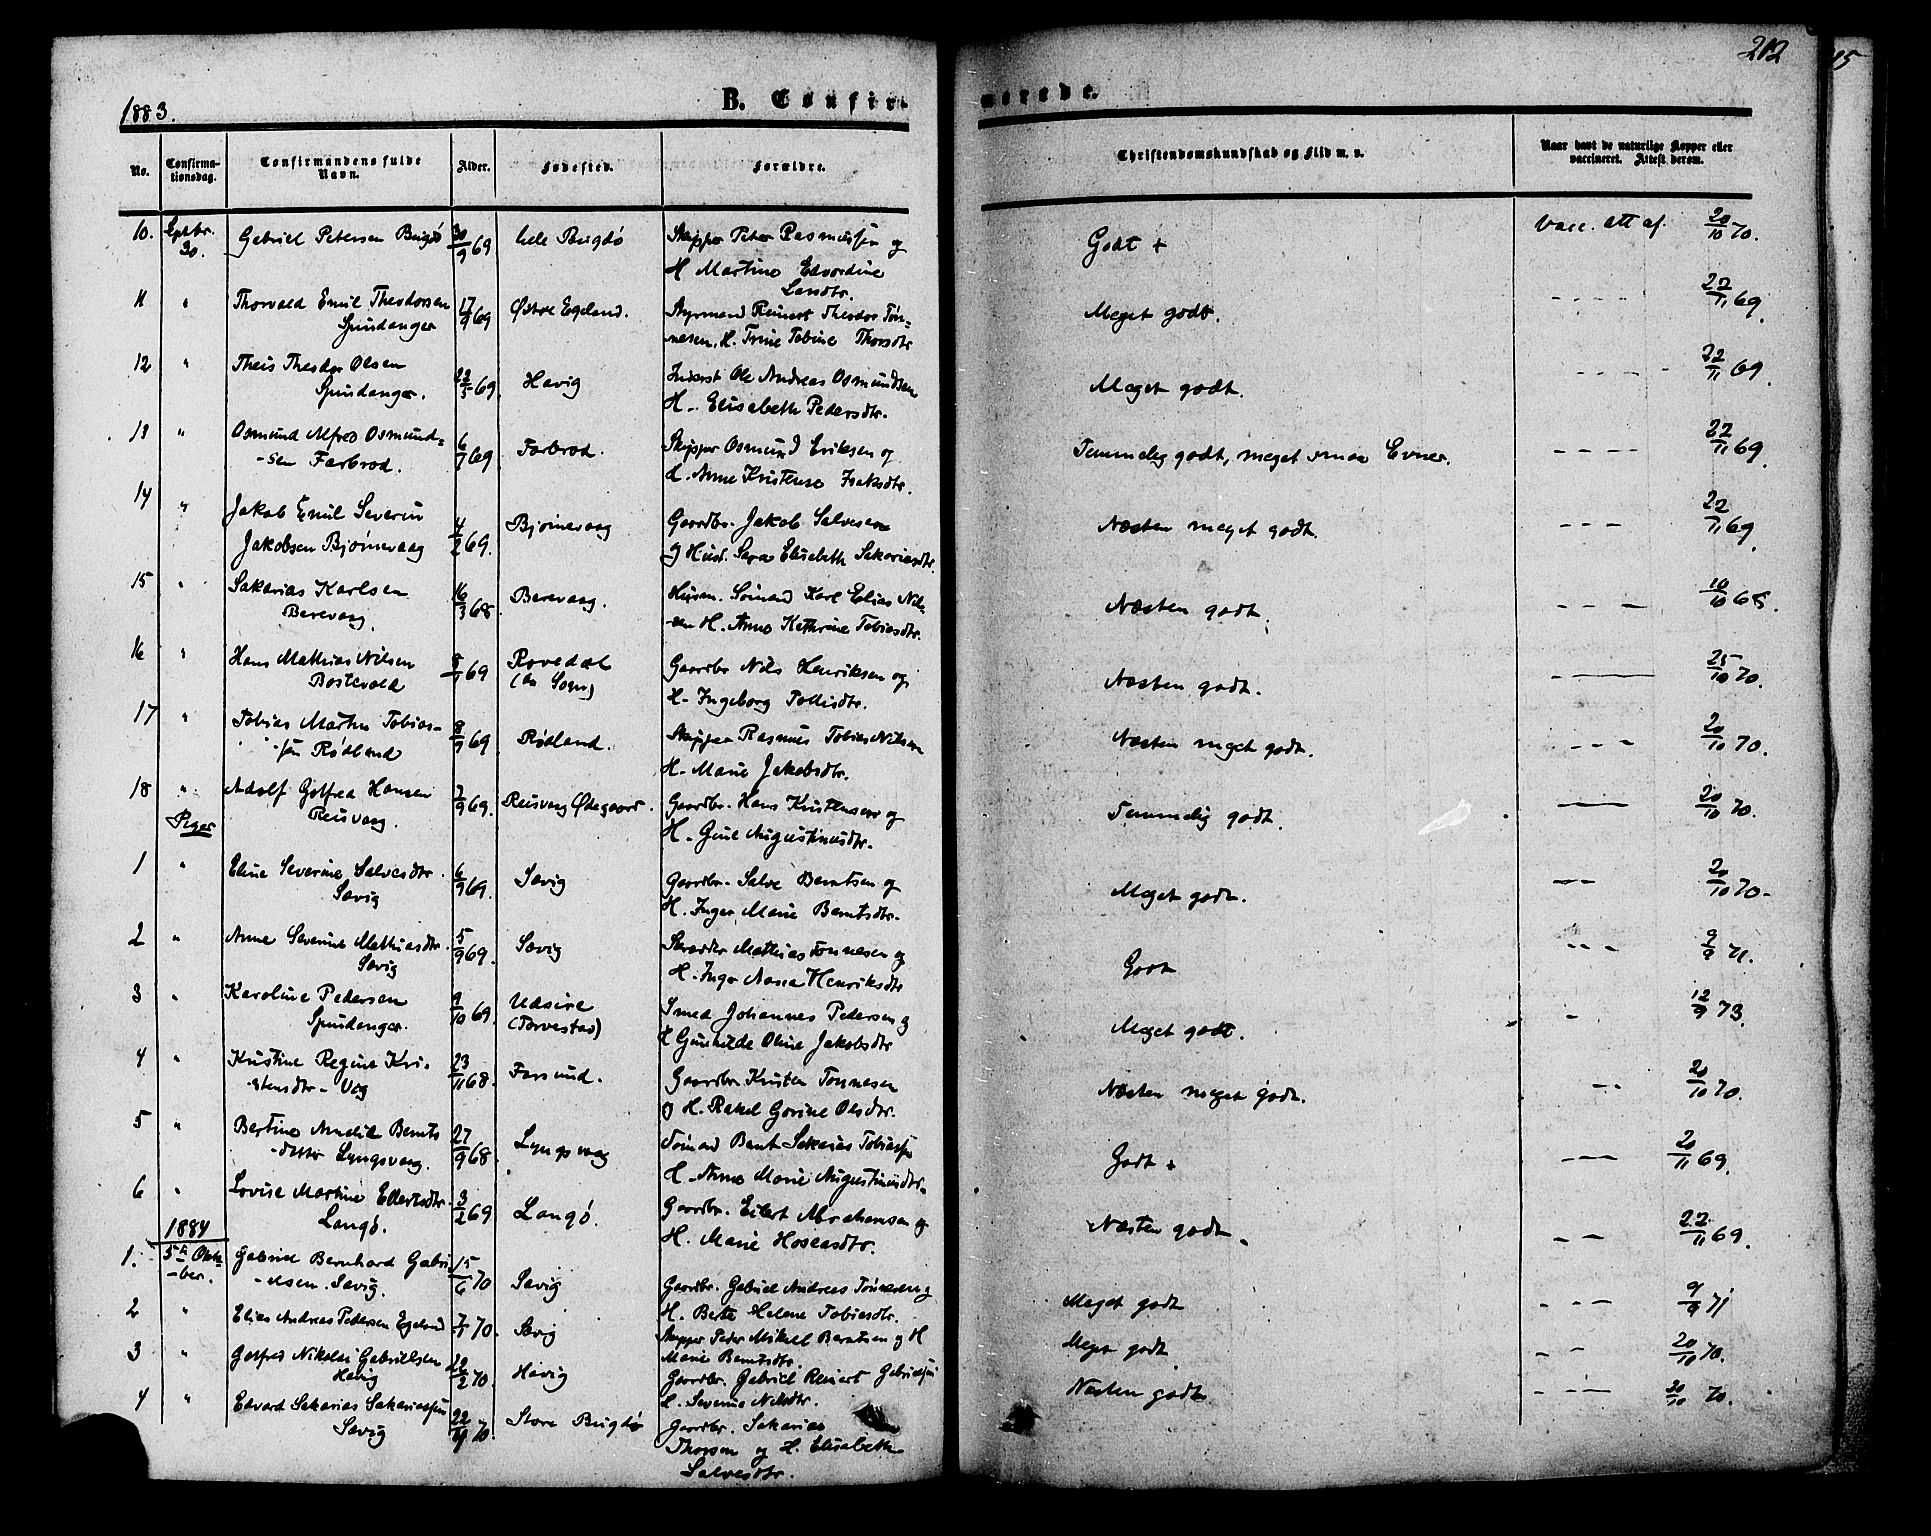 212
1883.
B. Confir-
merede.
No.
Confirma-
tionsdag.
Confirmandens fulde
Navn.
Alder.
Fødested.
Forældre.
Christendomskundskab og Flid m. v.
Naar havt de naturlige Kopper eller
vaccineret. Attest derom.
10. Sptbr. 30. Gabriel Petersen Bugdø 30/9 69 Lele Bugdø Skipper Peter Rasmussen og
H Martine Edvordine
Landtr.
Godt + Vacc. att af. 20/10 70.
11 " Thorvald Emil Theodorsen 17/9 69 Østre Egeland. Styrmand Reinert Theodor Tøn-
Spindanger nesen, H. Trine Tobine Thorsdtr
Meget godt. 22/11 69.
12 " Theis Theodor Olsen 69. Havig Inderst Ole Andreas Osmundsen
Spindanger. H. Elisabeth Pedersdtr.
Meget godt. 22/11 69.
13 " Osmund Alfred Osmund- 6/7 69 Farbrod. Skipper Osmund Eriksen og
-sen Farbrod. H. Anne Kristense Isaksdtr.
Temmelig godt, meget smaa Evner. 22/11 69.
14 " Jakob Emil Severin 4/2 69. Bjørnevaag Gaardbr. Jakob Salvesen
Jakobsen Bjørnevaag og Hust. Sara Elisabeth Sakariasdtr.
Næsten meget godt. 22/11 69.
15 " Sakarias Karlsen 16/3 68. Berevaag. Husm. Sømand Karl Elias Nil-
Berevaag. sen H. Anne Kathrine Tobiasdtr.
Næsten godt. 10/10 68.
16 " Hans Mathias Nilsen 69 Rovedal Gaardbr Nils Henriksen og
Bostevold (do Sogn) H. Ingeborg Tollisdtr.
Næsten godt. 25/10 70.
17 " Tobias Martin Tobias- 8/9 69 Rødland. Skipper Rasmus Tobias Nilsen
-sen Rødland H. Marie Jakobsdtr.
Næsten meget godt. 20/10 70.
18 " Adolf Gotfred Hansen 7/9 69. Reisvaag Ødegaard. Gaardbr. Hans Kristensen og
Reisvaag. H. Guni Augustinusdtr.
Temmelig godt. 20/10 70.
Piger
1 " Eline Severine Salvesdtr. 6/9 69. Sævig Gaardbr. Salve Berntsen og
Sævig H. Inger Marie Berntsdtr.
Meget godt. 20/10 70-
2 " Anne Severine Mathiasdtr. 5/9 69. Sævig Skrædder Mathias Tønnesen og
Sævig H. Inger Maria Henriksdtr
Godt 9/9 71.
3 " Karoline Pedersen 9/10 69. Udsire Smed Johannes Pedersen og
Spindanger. (Torvestad) H Gunhilde Oline Jakobsdtr
Meget godt. 12/9 73.
4 " Kristine Regine Kri- 23/11 68. Farsund. Gaardbr. Kristen Tønnesen
-stensdtr- Vag og H. Rakel Gorine Olsdtr.
Næsten meget godt. 20/10 70.
5 " Bertine Amalie Bernts 27/9 68. Lyngsvaag Sømand Bernt Sakarias Tobiassen
-datter Lyngsvaag. H. Anne Marie Augustinusdtr.
Godt + 20/11 69.
6 " Lovise Martine Eilertsdtr. 3/2 69 Langø. Gaardbr. Eilert Abrahamsen og
Langø. H. Marie Hoseasdtr.
Næsten godt. 22/11 69.
1884
1. 5te Okto-
-ber. Gabriel Bernhard Gabri- 15/6 70 Sævig Gaardbr. Gabriel Andreas Tønnesen og
-elsen. Sævig. H. Berte Helene Tobiasdtr.
Meget godt 9/9 71
2 " Elias Andreas Pedersen Egeland 7/1 70. Sævig Skipper Peder Mikael Berntsen og H
Marie Berntsdtr.
Meget godt 20/10 70.
3 " Gotfred Nikolai Gabrielsen 20/2 70. Havig Gaardbr. Gabriel Reinert Gabrielsen
Havig H. Severine Nilsdtr.
Næsten godt 20/10 70.
4 " Edvard Sakarias Sakariassen 70. Store Bugdø Gaardbr. Sakarias
Sævig Thorsen og H. Elisabeth
Salvesdtr.